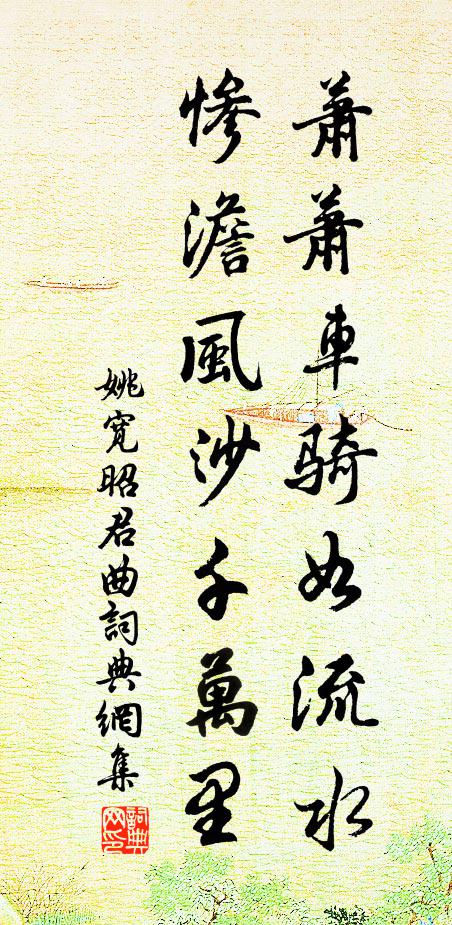 蕭蕭車騎如流水
慘澹風沙千萬里
姚寬昭君曲詞典網集
詞典网印